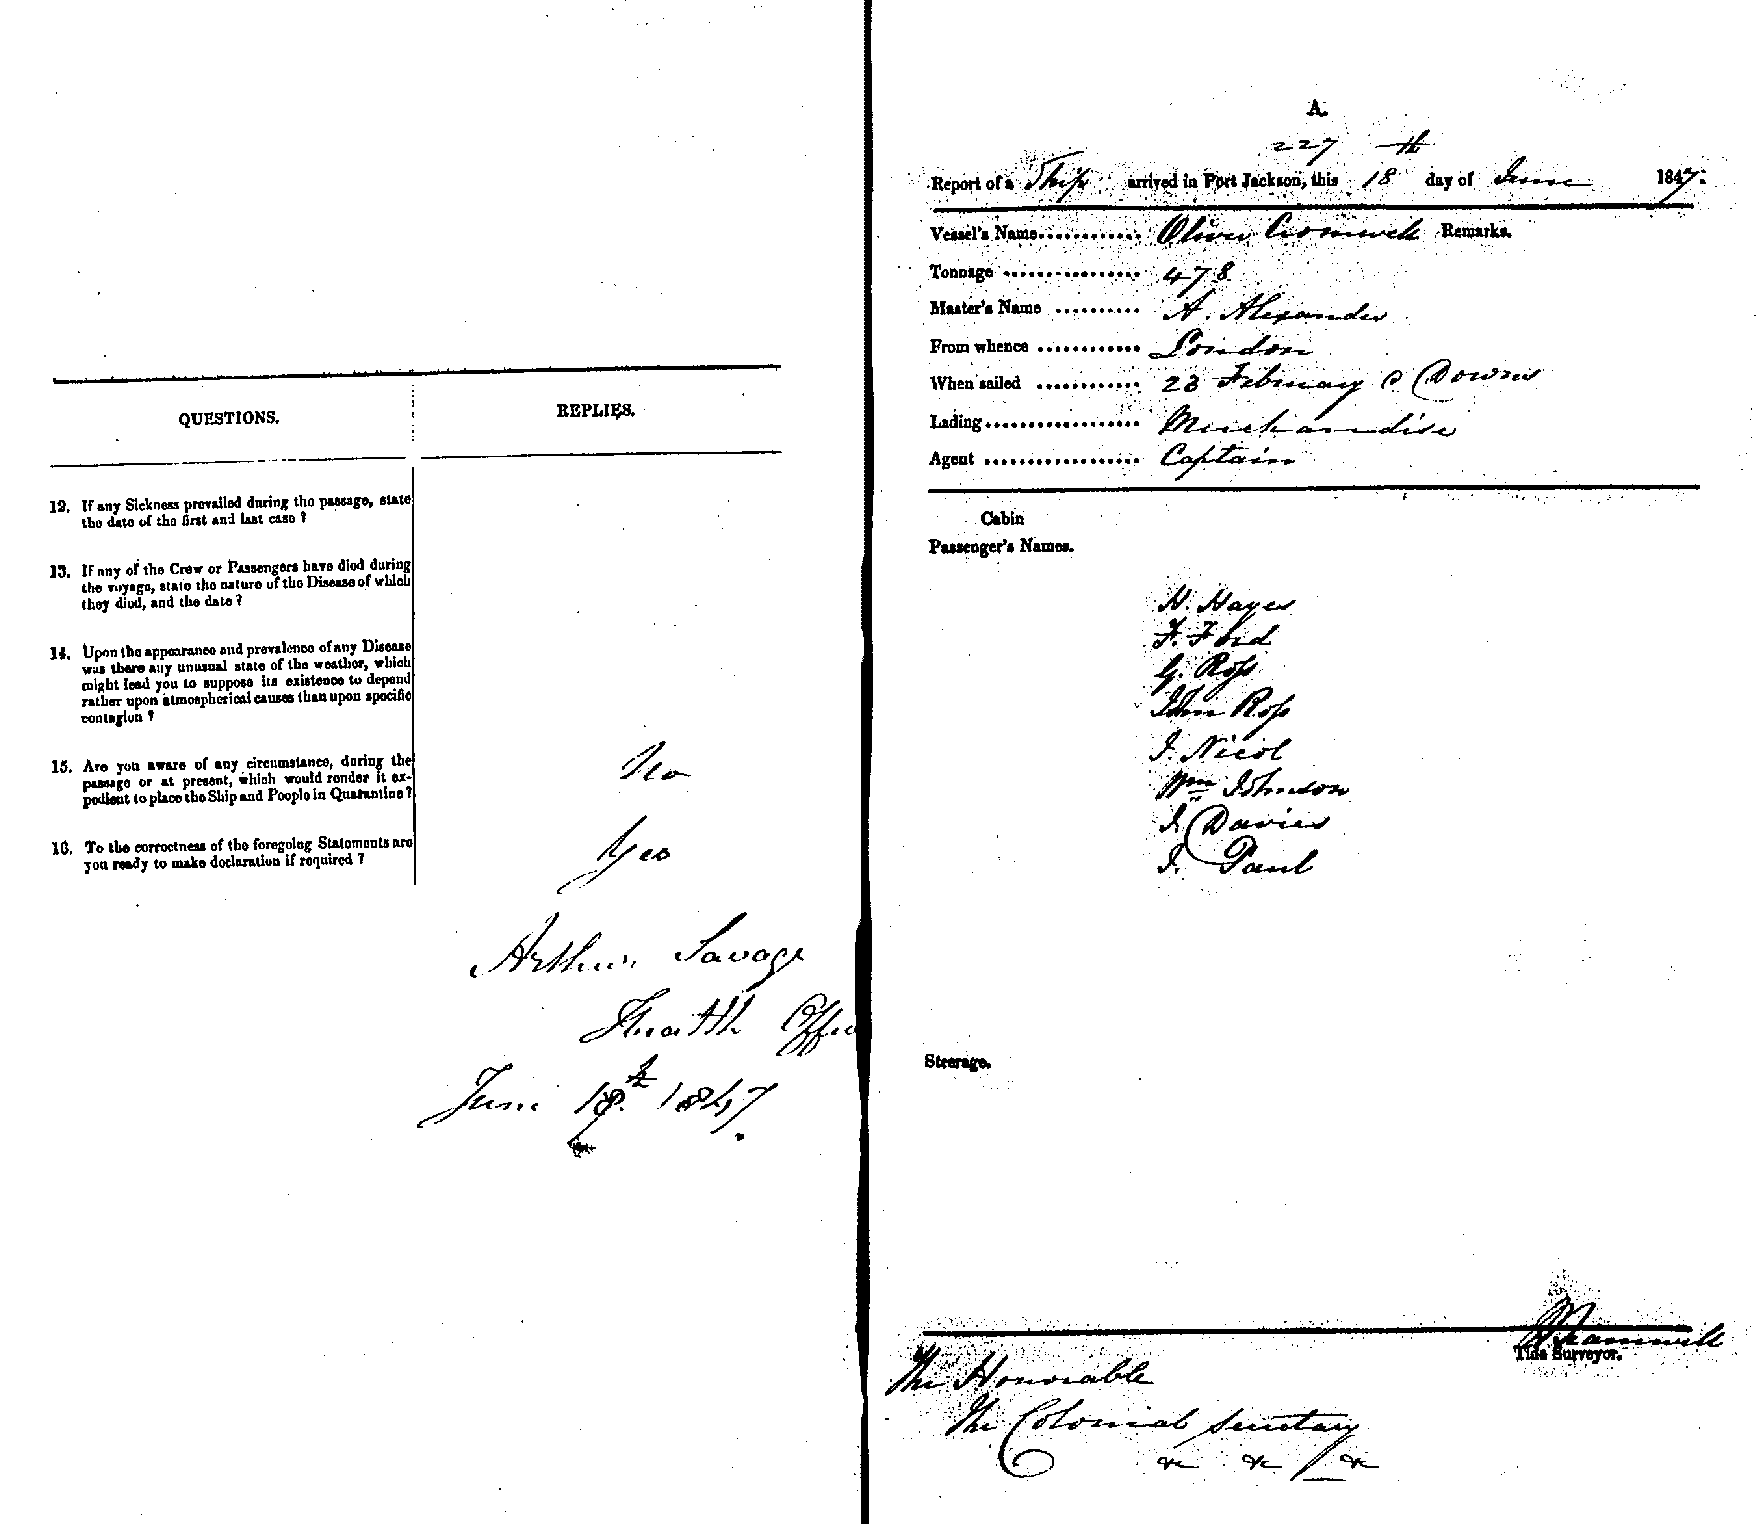 QUESTIONS.
REPLIES.
12. If any Sickness prevailed during the passage, state
the date of the first and last case ?
13. If any of the Crew or Passengers have died during
the voyage, state the nature of the Disease of which
they died, and the date ?
14. Upon the appearance and prevalence of any Disease
was there any unusual state of the weather, which
might lead you to suppose its existence to depend
rather upon atmospherical causes than upon specific
contagion ?
15. Are you aware of any circumstance, during the
passage or at present, which would render it ex-
pedient to place the Ship and People in Quarantine ?
No
16. To the correctness of the foregoing Statements are
you ready to make declaration if required ?
Yes
Arthur Savage
Health Office
June 18th 1847
A.
227 th
Report of a Ship arrived in Port Jackson, this 18 day of June 1847:
Vessel's Name............ Oliver Cromwell Remarks.
Tonnage ................ 478
Master's Name .......... A. Alexander
From whence ............ London
When sailed ............ 23 February Downs
Lading.................. Merchandise
Agent .................. Captain
Cabin
Passenger's Names.
H. Hayes
F. Ford
G. Ross
John Ross
J. Nicol
Wm Johnson
J. Davies
J. Paul
Steerage.
Bramwell
Tide Surveyor.
The Honorable
The Colonial Secretary
&c &c &c